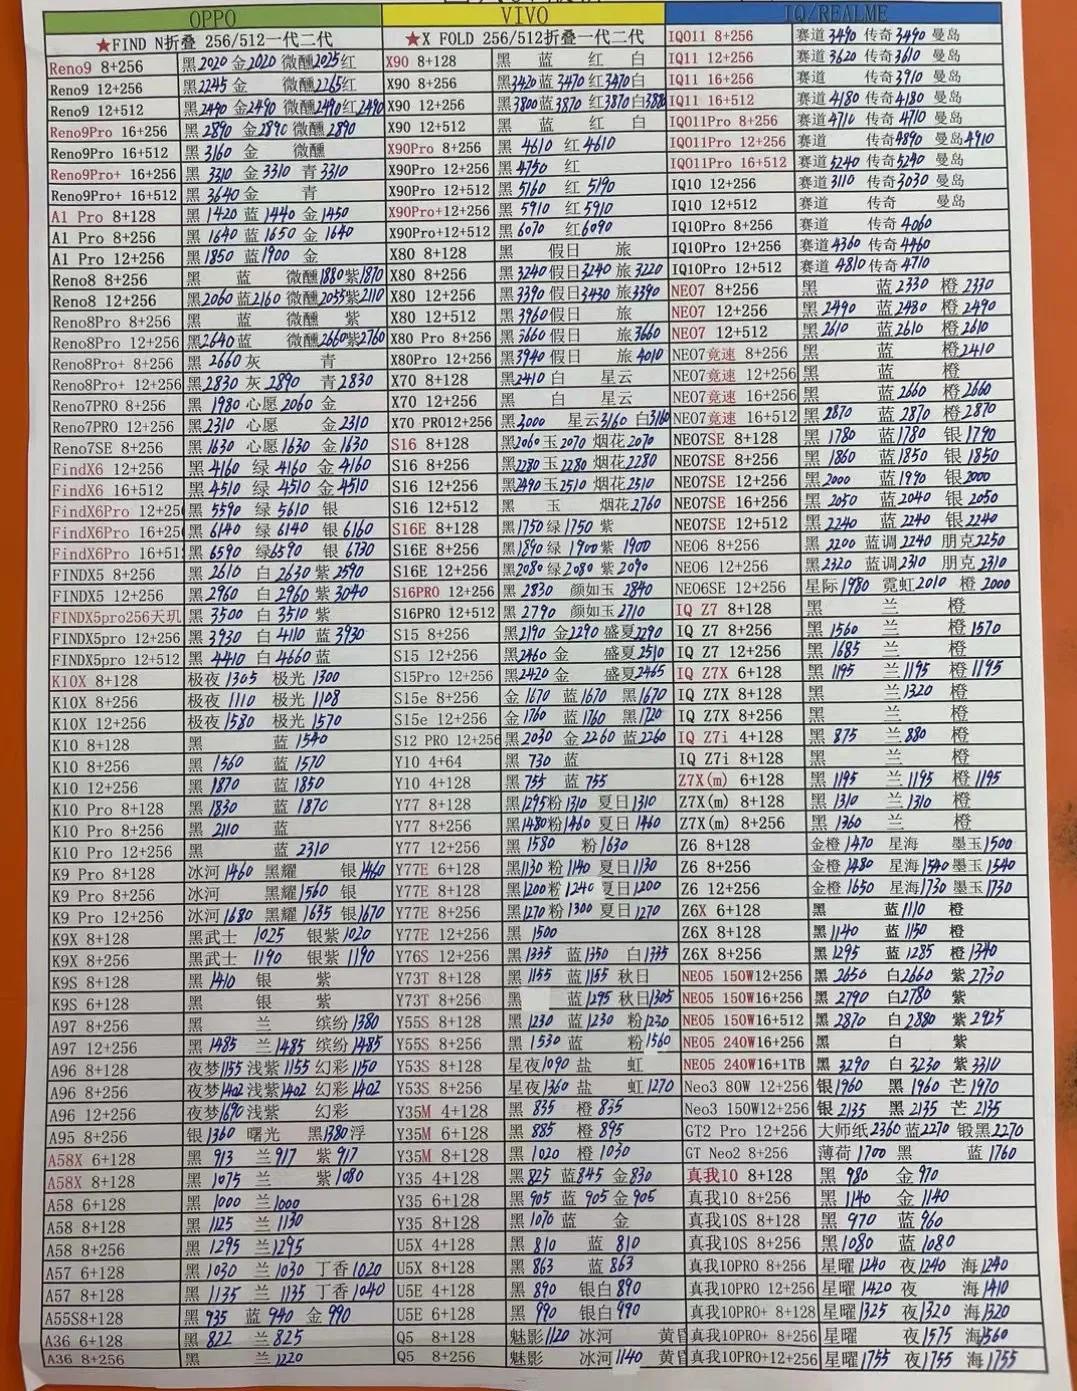 OPPO
★FIND N折叠 256/512一代二代
Reno9 8+256 黑2020 金2020 微醺2025红
Reno9 12+256 黑2245 金 微醺2265红
Reno9 12+512 黑2490 金2490 微醺2490红2490
Reno9Pro 16+256 黑2890 金2890 微醺2890
Reno9Pro 16+512 黑3160 金 微醺
Reno9Pro+ 16+256 黑3310 金3310 青3310
Reno9Pro+ 16+512 黑3640金 青
A1 Pro 8+128 黑1420 蓝1440 金1450
A1 Pro 8+256 黑1640 蓝1650 金1640
A1 Pro 12+256 黑1850 蓝1900 金
Reno8 8+256 黑 蓝 微醺1880紫1870
Reno8 12+256 黑2060蓝2160 微醺2055紫2110
Reno8Pro 8+256 黑 蓝 微醺 紫
Reno8Pro 12+256 黑2640蓝 微醺2660紫2760
Reno8Pro+ 8+256 黑2660灰 青
Reno8Pro+ 12+256 黑2830 灰2890 青2830
Reno7PRO 8+256 黑1980 心愿2060 金
Reno7PRO 12+256 黑2310 心愿 金2310
Reno7SE 8+256 黑1630 心愿1630 金1630
FindX6 12+256 黑4160 绿4160 金4160
FindX6 16+512 黑4510 绿4510 金4510
FindX6Pro 12+256 黑5590 绿5610 银
FindX6Pro 16+256 黑6140 绿6140 银6160
FindX6Pro 16+512 黑6590 绿6590 银6730
FINDX5 8+256 黑2610 白2630紫2590
FINDX5 12+256 黑2960 白2960紫3040
FINDX5pro256天玑 黑3500 白3510紫
FINDX5pro 12+256 黑3930 白4110 蓝3930
FINDX5pro 12+512 黑4410 白4660蓝
K10X 8+128 极夜1305 极光1300
K10X 8+256 极夜1110 极光1108
K10X 12+256 极夜1580 极光1570
K10 8+128 黑 蓝1540
K10 8+256 黑1560 蓝1570
K10 12+256 黑1870 蓝1850
K10 Pro 8+128 黑1830 蓝1870
K10 Pro 8+256 黑2110 蓝
K10 Pro 12+256 黑 蓝2310
K9 Pro 8+128 冰河1460 黑耀 银1460
K9 Pro 8+256 冰河 黑耀1560 银
K9 Pro 12+256 冰河1680 黑耀1635 银1670
K9X 8+128 黑武士 1025 银紫1020
K9X 8+256 黑武士 1190 银紫1190
K9S 8+128 黑1410 银 紫
K9S 6+128 黑 银 紫
A97 8+256 黑 兰 缤纷1380
A97 12+256 黑1485 兰1485 缤纷1485
A96 8+128 夜梦1155浅紫1155幻彩1150
A96 8+256 夜梦1402浅紫1402幻彩1402
A96 12+256 夜梦1690浅紫 幻彩
A95 8+256 银1360 曙光 黑1380浮
A58X 6+128 黑913 兰917 紫917
A58X 8+128 黑1075 兰 紫1080
A58 6+128 黑1000 兰1000
A58 8+128 黑1125 兰1130
A58 8+256 黑1295 兰1295
A57 6+128 黑1030 兰1030 丁香1020
A57 8+128 黑1135 兰1135 丁香1040
A55S8+128 黑935 蓝940 金990
A36 6+128 黑822 兰825
A36 8+256 黑 兰1220
VIVO
★X FOLD 256/512折叠一代二代
X90 8+128 黑 蓝 红 白
X90 8+256 黑3420蓝3470红3470白
X90 12+256 黑3800蓝3870红3870白3880
X90 12+512 黑 蓝 红 白
X90Pro 8+256 黑4610 红4610
X90Pro 12+256 黑4750 红
X90Pro 12+512 黑5160 红5190
X90Pro+12+256 黑5910 红5910
X90Pro+12+512 黑6070 红6090
X80 8+128 黑 假日 旅
X80 8+256 黑3240假日3240 旅3220
X80 12+256 黑3390假日3430 旅3390
X80 12+512 黑3960假日 旅
X80 Pro 8+256 黑3660假日 旅3660
X80Pro 12+256 黑3940假日 旅4010
X70 8+128 黑2410白 星云
X70 12+256 黑 白 星云
X70 PRO12+256 黑3000 星云3160白3160
S16 8+128 黑2060玉2070 烟花2070
S16 8+256 黑2280玉2280 烟花2280
S16 12+256 黑2490玉2510 烟花2510
S16 12+512 黑 玉 烟花2760
S16E 8+128 黑1750绿1750紫
S16E 8+256 黑1890绿1900紫1900
S16E 12+256 黑2080绿2080紫2090
S16PRO 12+256 黑2830 颜如玉2840
S16PRO 12+512 黑2790 颜如玉2710
S15 8+256 黑2190 金2290盛夏2290
S15 12+256 黑2460金 盛夏2510
S15Pro 12+256 黑2420金 盛夏2465
S15e 8+256 金1670 蓝1670 黑1670
S15e 12+256 金1760 蓝1760 黑1720
S12 PRO 12+256 黑2030 金2260 蓝2260
Y10 4+64 黑730 蓝
Y10 4+128 黑755 蓝755
Y77 8+128 黑1295粉1310 夏日1310
Y77 8+256 黑1480粉1460 夏日1460
Y77 12+256 黑1580 粉1630
Y77E 6+128 黑1130粉1140 夏日1130
Y77E 8+128 黑1200粉1240 夏日1200
Y77E 8+256 黑1270粉1300 夏日1270
Y77E 12+256 黑1500
Y76S 12+256 黑1335 蓝1350 白1335
Y73T 8+128 黑1155 蓝1155 秋日
Y73T 8+256 黑 蓝1295 秋日1305
Y55S 8+128 黑1230 蓝1230 粉1230
Y55S 8+256 黑1530 蓝 粉1560
Y53S 8+128 星夜1090 盐 虹
Y53S 8+256 星夜1360 盐 虹1270
Y35M 4+128 黑835 橙835
Y35M 6+128 黑885 橙895
Y35M 8+128 黑1020 橙1030
Y35 4+128 黑825 蓝845 金830
Y35 6+128 黑905 蓝905金905
Y35 8+128 黑1070 蓝 金
U5X 4+128 黑810 蓝810
U5X 8+128 黑863 蓝863
U5E 4+128 黑890 银白890
U5E 6+128 黑990 银白990
Q5 8+128 魅影1120 冰河 黄昏
Q5 8+256 魅影 冰河1140 黄昏
IQ/REALME
IQ011 8+256 赛道3490 传奇3490 曼岛
IQ11 12+256 赛道3620 传奇3610 曼岛
IQ11 16+256 赛道 传奇3910 曼岛
IQ11 16+512 赛道4180 传奇4180 曼岛
IQO11Pro 8+256 赛道4710 传奇4710 曼岛
IQO11Pro 12+256 赛道 传奇4890 曼岛4910
IQO11Pro 16+512 赛道5240 传奇5240 曼岛
IQ10 12+256 赛道3110 传奇3030 曼岛
IQ10 12+512 赛道 传奇 曼岛
IQ10Pro 8+256 赛道 传奇4060
IQ10Pro 12+256 赛道4360传奇4460
IQ10Pro 12+512 赛道4810传奇4710
NEO7 8+256 黑 蓝2330 橙2330
NEO7 12+256 黑2490 蓝2480 橙2490
NEO7 12+512 黑2610 蓝2610 橙2610
NEO7竟速 8+256 黑 蓝 橙2410
NEO7竟速 12+256 黑 蓝 橙
NEO7竟速 16+256 黑 蓝2660 橙2660
NEO7竟速 16+512 黑2870 蓝2870 橙2870
NEO7SE 8+128 黑1780 蓝1780 银1790
NEO7SE 8+256 黑1860 蓝1850 银1850
NEO7SE 12+256 黑2000 蓝1990 银2000
NEO7SE 16+256 黑2050 蓝2040 银2050
NEO7SE 12+512 黑2240 蓝2240 银2240
NEO6 8+256 黑2200 蓝调2240 朋克2250
NEO6 12+256 黑2320 蓝调2310 朋克2310
NEO6SE 12+256 星际1980 霓虹2010 橙2000
IQ Z7 8+128 黑 兰 橙
IQ Z7 8+256 黑1560 兰 橙1570
IQ Z7 12+256 黑1685 兰 橙
IQ Z7X 6+128 黑1195 兰1195 橙1195
IQ Z7X 8+128 黑 兰1320 橙
IQ Z7X 8+256 黑 兰 橙
IQ Z7i 4+128 黑875 兰880 橙
IQ Z7i 8+128 黑 兰 橙
Z7X(m) 6+128 黑1195 兰1195 橙1195
Z7X(m) 8+128 黑1310 兰1310 橙
Z7X(m) 8+256 黑1360 兰 橙
Z6 8+128 金橙1470 星海 墨玉1500
Z6 8+256 金橙1480 星海1540墨玉1540
Z6 12+256 金橙1650 星海1730墨玉1730
Z6X 6+128 黑 蓝1110 橙
Z6X 8+128 黑1140 蓝1150 橙
Z6X 8+256 黑1295 蓝1285 橙1340
NEO5 150W12+256 黑2650 白2660 紫2730
NEO5 150W16+256 黑2790 白2780 紫
NEO5 150W16+512 黑2870 白2880 紫2925
NEO5 240W16+256 黑 白 紫
NEO5 240W16+1TB 黑3290 白3230 紫3310
Neo3 80W 12+256 银1960 黑1960 芒1970
Neo3 150W12+256 银2135 黑2135 芒2135
GT2 Pro 12+256 大师纸2360蓝2270锻黑2270
GT Neo2 8+256 薄荷1700 黑 蓝1760
真我10 8+128 黑980 金970
真我10 8+256 黑1140 金1140
真我10S 8+128 黑970 蓝960
真我10S 8+256 黑1080 蓝1080
真我10PRO 8+256 星曜1240 夜1240 海1240
真我10PRO 12+256 星曜1420夜 海1410
真我10PRO+ 8+128 星曜1325 夜1320 海1320
真我10PRO+ 8+256 星曜 夜1575 海1560
真我10PRO+12+256 星曜1755 夜1755 海1755